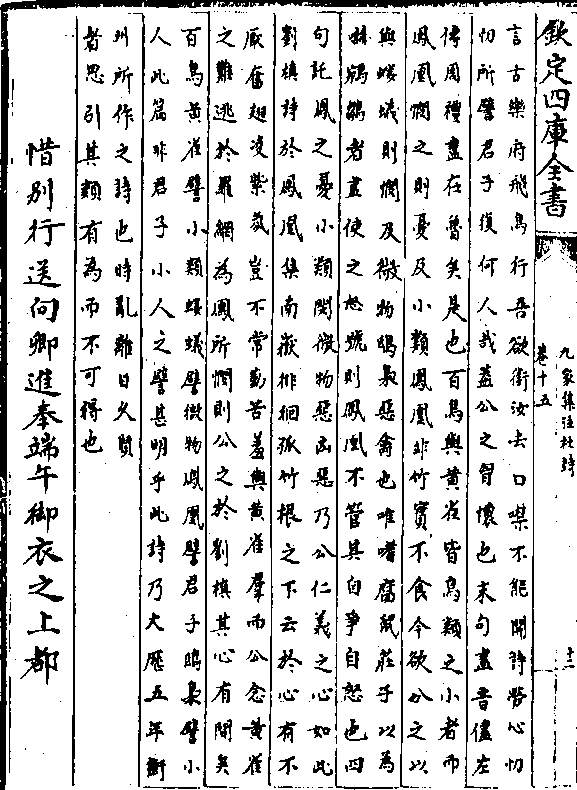 欽定四庫全書
九家集注杜詩
卷十五
十二
言古樂府飛鳥行吾欲銜汝去口噤不能開詩勞心忉
忉所譬君子復何人哉蓋公之智懷也末句盡昔儘左
傳周禮盡在魯矣是也百鳥與黃雀皆鳥類之小者而
鳳凰憫之則憂及小類鳳凰非竹實不食今欲分之以
與螻蟻則憫及微物鴟梟惡禽也唯嗜腐鼠莊子以為
嚇鵷鶵者盡使之怒號則鳳凰不管其自爭自怒也四
句託鳳之憂小類閔微物惡凶惡乃公仁義之心如此
劉楨詩於鳳凰集南嶽徘徊孤竹根之下云於心有不
厭奮翅凌紫氛豈不常勤苦羞與黃雀羣而公念黃雀
之難逃於羅網為鳳所憫則公之於劉楨其心有間矣
百鳥黃雀譬小類螻蟻譬微物鳳凰譬君子鴟梟譬小
人此篇非君子小人之譬甚明乎此詩乃大歴五年衡
州所作之詩也時亂離日久賢
者思引其類有為而不可得也
惜别行送向卿進奉端午御衣之上都